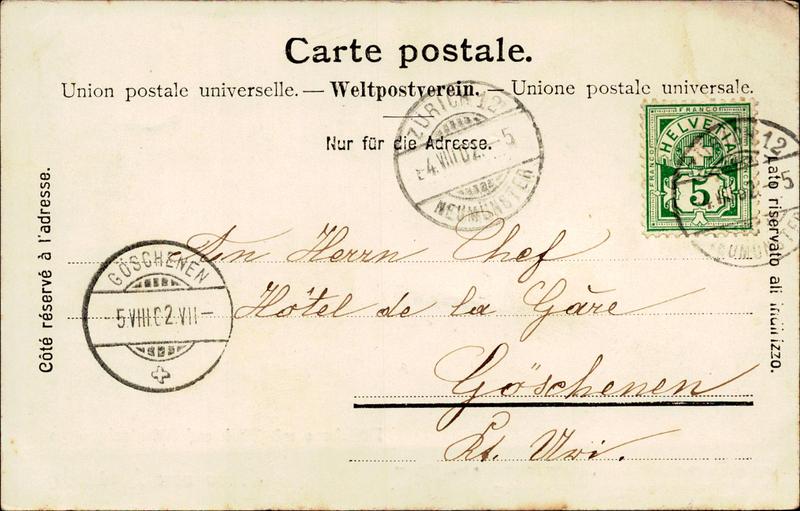 Carte postale.
Union postale universelle. — Weltpostverein. — Unione postale universale.
Nur für die Adresse.
ZÜRICH 12
4.VIII.02. - 5
NEUMÜNSTER
FRANCO
HELVETIA
5
FRANCO
FRANCO
12
5
NEUMÜNSTER
Côté réservé à l'adresse.
Lato riservato all' indirizzo.
An Herrn Chef
Hôtel de la Gare
Göschenen
Kt. Uri.
GÖSCHENEN
5.VIII.02.VII-